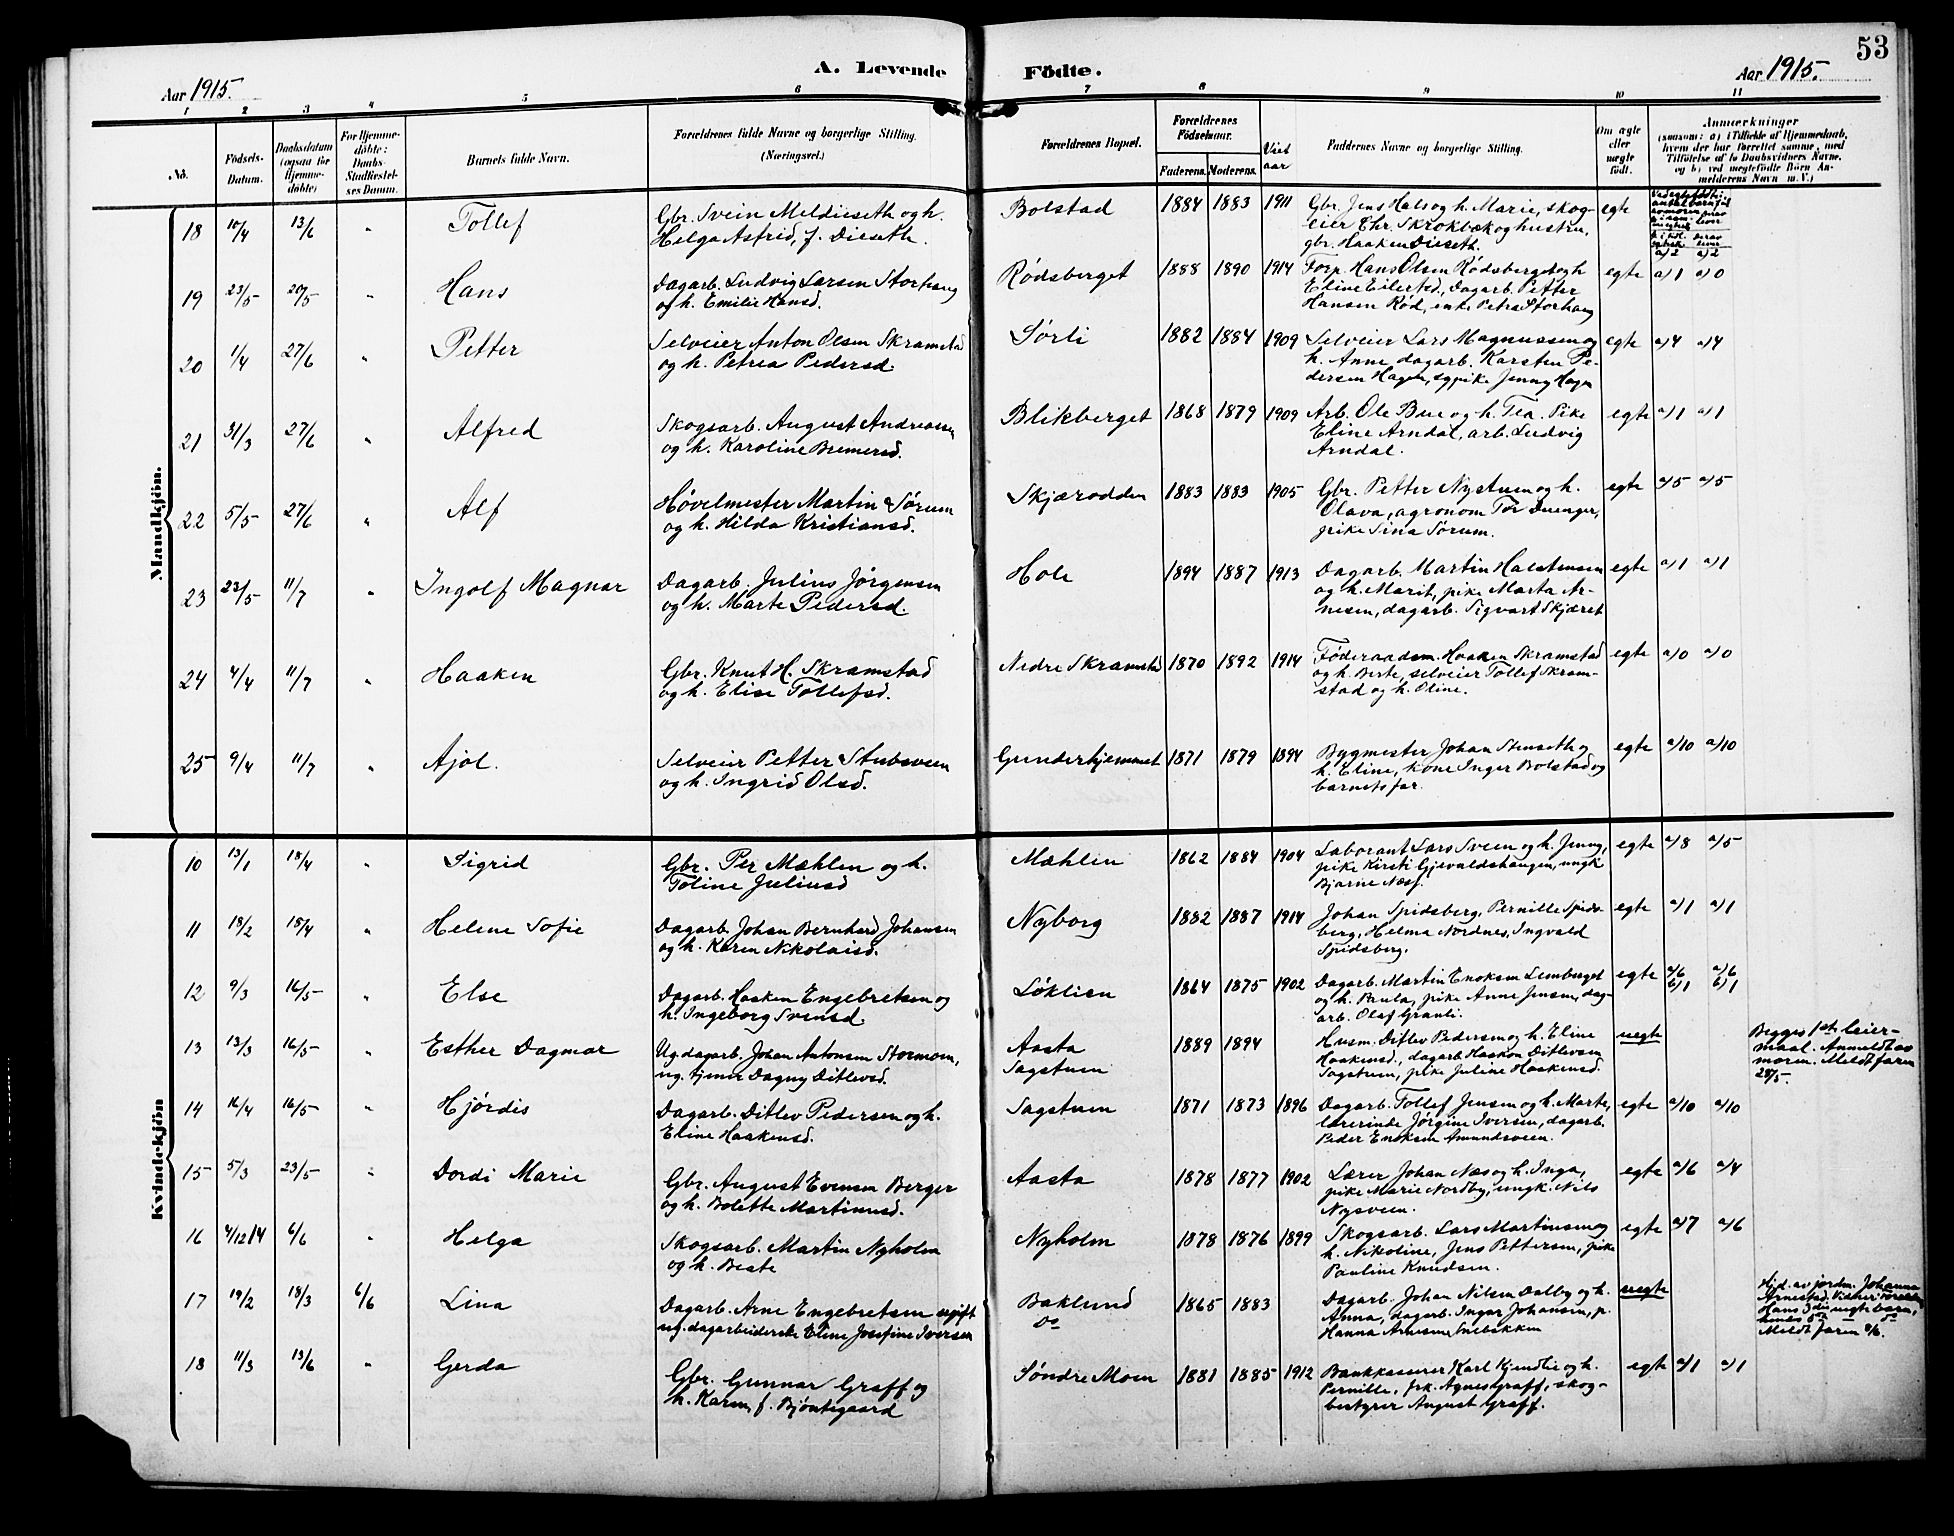 53
A. Levende Födte.
Aar 1915.
Aar 1915.
1 2 3 4 5 6 7 8 9 10 11
No.
Födsels-Datum.
Daabsdatum (ogsaa for Hjemmedöbte)
For Hjemmedöbte: Daabs-Stadfæstelses Datum.
Barnets fulde Navn.
Forældrenes fulde Navne og borgerlige Stilling.
(Næringsvei.)
Forældrenes Bopæl.
Forældrenes Födselsaar.
Faderens. Moderens.
Viet aar
Faddernes Navne og borgerlige Stilling.
Om ægte eller uægte født.
Anmærkninger
(saasom: a) i Tilfælde af Hjemmedaab,
hvem der har forrettet samme, med
Tilföielse af to Daabsvidners Navne,
og b) ved uægtefödte Börn An-
melderens Navn m. V.)
Mandkjön.
18 10/4 13/6 " Tollef Gbr. Svein Meldieseth og h. Bolstad 1884 1883 1911 Gbr. Jens Hals og h. Marie, skog- egte
Helga Astrid, f. Dieseth. eier Chr. Skrokbæk og hustru,
gbr. Haaken Dieseth. a/2 a/2
19 23/5 20/5 " Hans Dagarb. Ludvig Larsen Storhaug Rødsberget 1888 1890 1914 Forp. Hans Olsen Rødsberget og h egte a/1 a/0
og h. Emilie Hansd. Eline Eilertsd., Dagarb. Petter
Hansen Rød, enke Petra Storhaug
20 1/4 27/6 " Petter Selveier Anton Olsen Skramstad Sørli 1882 1884 1909 Selveier Lars Magnussen og egte a/4 a/4
og h. Petrea Pedersd. h. Anne dagarb. Karsten Pe-
dersen Hagen, sypike Jenny Hagen
21 31/3 27/6 " Alfred Skogsarb. August Andreasen Blikberget 1868 1879 1909 Arb. Ole Bue og h. Tea. Pike egte a/1 a/1
og h. Karoline Bremersd. Eline Arndal, arb. Ludvig
Arndal.
22 5/5 27/6 " Alf Høvelmester Martin Sørum Skjærodden 1883 1883 1905 Gbr. Petter Nystuen og h. egte a/5 a/5
og h. Hilda Kristiansd. Olava, agronom Tor Duenger,
pike Sina Sørum.
23 23/5 11/7 " Ingolf Magnar Dagarb. Julius Jørgensen Hole 1894 1887 1913 Dagarb. Martin Halstensen egte a/1 a/1
og h. Marte Pedersd. og h. Marit, pike Marta Ar-
nesen, dagarb. Sigvart Skjæret
24 4/4 11/7 " Haaken Gbr. Knut H. Skramstad Nedre Skramstad 1870 1892 1914 Føderaadsm. Haaken Skramstad egte a/0 a/0
og h. Elise Tollefsd. og h. Berte, selveier Tollef Skram-
stad og h. Oline.
25 9/4 11/7 " Ajol. Selveier Petter Stubsveen Gunderhjemmet 1871 1879 1894 Bygmester Johan Stenseth og egte a/10 a/10
og h. Ingrid Olsd. h. Eline, kone Inger Bolstad og
barnets far.
Kvindekjön
10 13/1 18/4 " Sigrid Gbr. Per Mæhlen og h. Mæhlen 1862 1884 1904 Laborant Lars Sveen og h. Jenny, egte a/8 a/5
Toline Juliusd pike Kirsti Gjevaldshaugen, ungk
Bjarne Næss.
11 18/2 18/4 " Helene Sofie Dagarb. Johan Bernhard Johansen Nyborg 1882 1887 1914 Johan Spidsberg, Pernille Spids- egte a/1 a/1
og h. Karen Nikolaisd. berg, Helma Nordnes, Ingvald
Spidsberg.
12 9/3 16/5 " Else Dagarb. Haaken Engebretsen og Løklien 1864 1875 1902 Dagarb. Martin Enoksen Lemberget egte a/6 b/1 a/6 b/1
h. Ingeborg Svensd. og h. Paula, pike Anne Jensen, dag-
arb. Olaf Granli.
13 13/3 16/5 " Esther Dagmar Ug. dagarb. Johan Antonsen Stormoen, Aasta 1889 1894 Husm. Ditlev Pedersen og h. Eline uegte Begges 1ste leier-
ug. tjener Dagny Ditlevsd. Sagstuen Haakensd., dagarb Haakon Ditlevsen maal. Anmeldt av
Sagstuen, pike Juline Haakensd. moren. Meldt faren
28/5.
14 16/4 16/5 " Hjørdis Dagarb. Ditlev Pedersen og h. Sagstuen 1871 1873 1896 Dagarb. Tollef Jensen og h. Marte, egte a/10 a/10
Eline Haakensd. lærerinde Jørgine Iversen, dagarb.
Peder Enoksen Amundsveen.
15 5/3 23/5 " Dordi Marie Gbr. August Evensen Berger Aasta 1878 1877 1902 Lærer Johan Næs og h. Inga, egte a/6 a/4
og h. Bolette Martinusd. pike Marie Nordby, ungk. Nils
Nysveen.
16 4/12 14 6/6 " Helga Skogsarb. Martin Nyholm Nyholm 1878 1876 1899 Skogsarb. Lars Martinsen og egte a/7 a/6
og h. Beate h. Nikoline, Jens Pettersen, pike
Pauline Knudsen.
17 19/2 18/3 6/6 Lina Dagarb. Arne Engebretsen ugift Baklund 1865 1883 Dagarb. Johan Nilsen Dalby og h. uegte Hjd. av jordm. Johanna
ug. dagarbeiderske Eline Josefine Iversen Do Anna, dagarb. Ingar Johansen, p.
Hanna Arnesen Snebakken Hans 3die uegte barn,
Meldt faren 8/6.
18 11/3 13/6 " Gerda Gbr. Gunnar Graff og Søndre Moen 1881 1885 1912 Bankkasserer Karl Kjendlie og h. egte a/1 a/1
h. Karen, f. Bjøntegaard Pernille, frk. Agnes Graff, skog-
bestyrer August Graff.